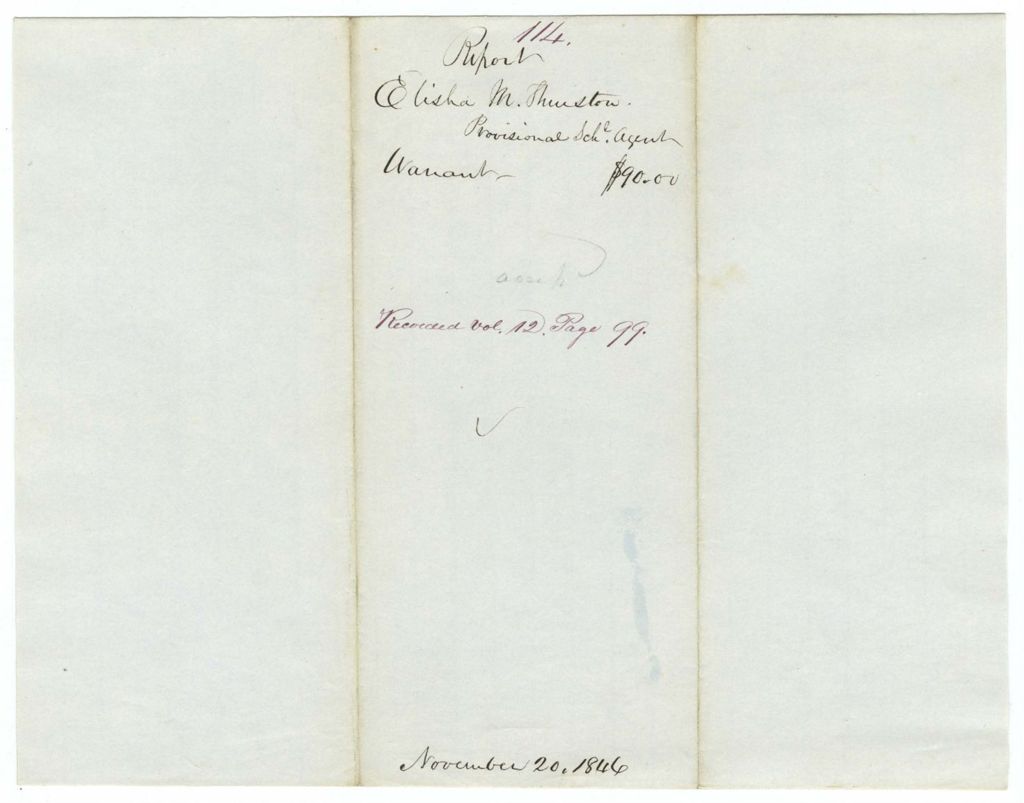 114.
Report
Elisha M. Thurston.
Provisional Schl. Agent
Warrant $90.00
Recorded Vol. 12. Page 99.
November 20, 1846